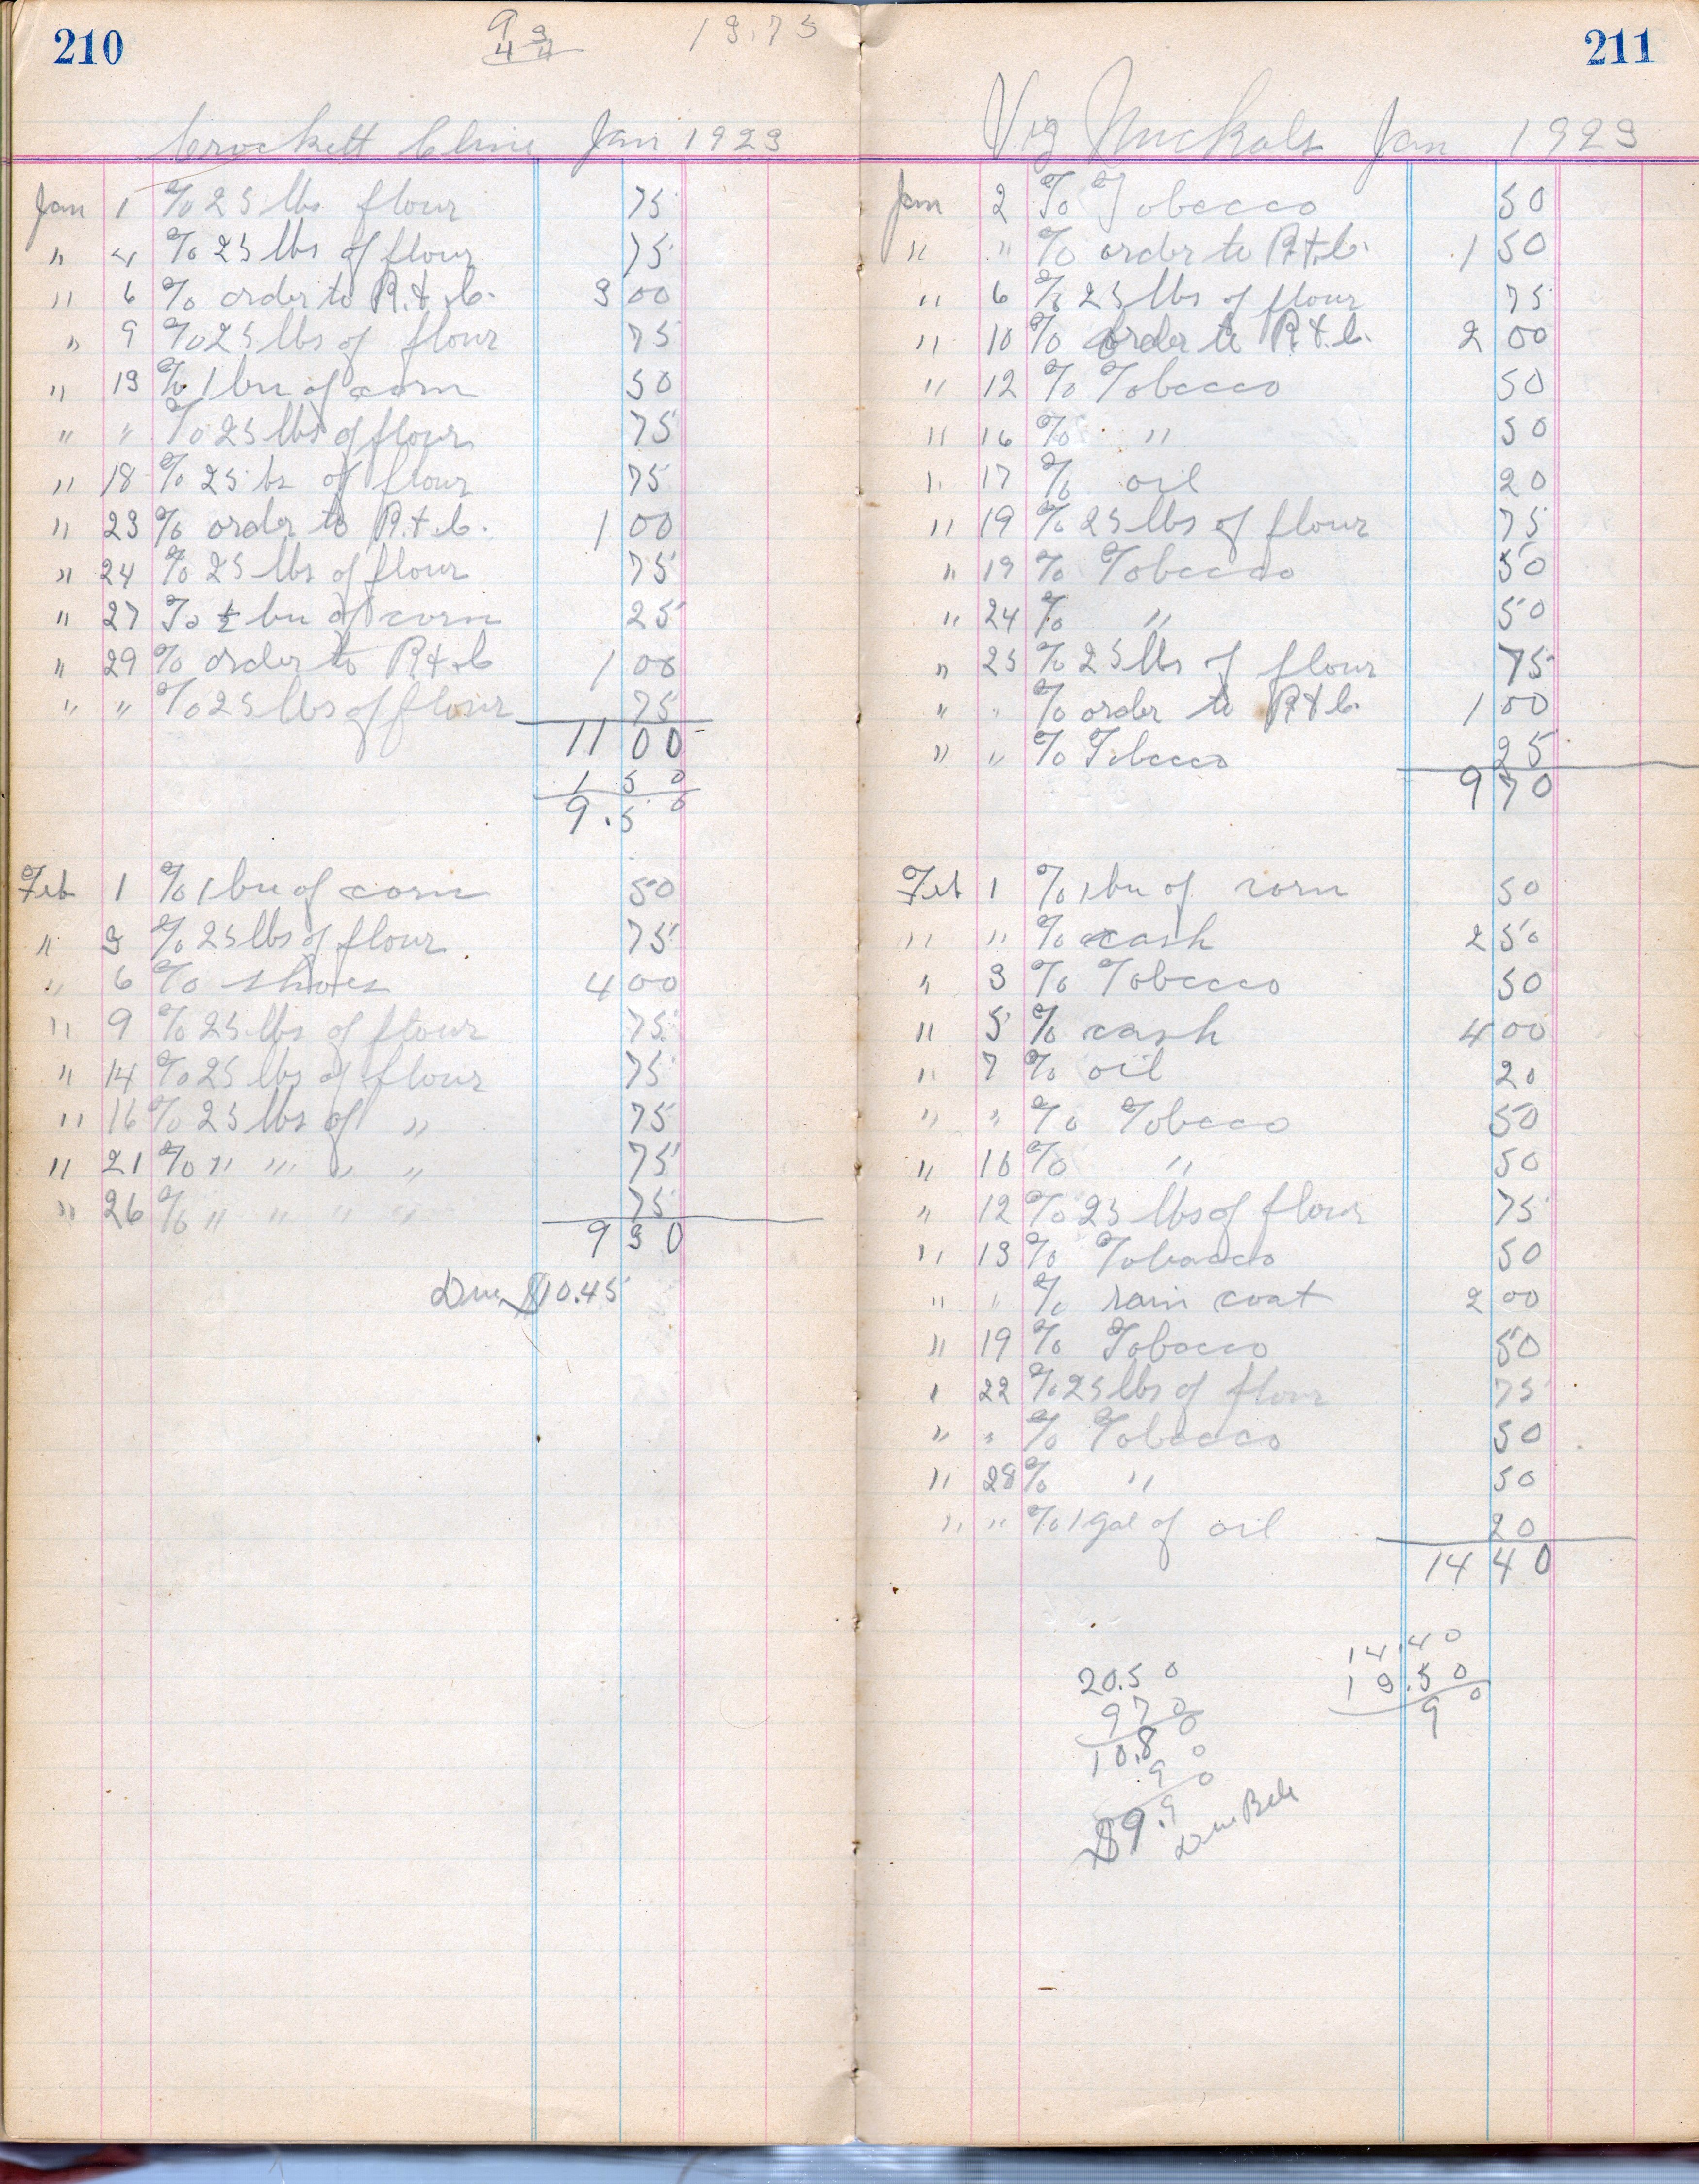 210
9 3/4 13.75
Crockett Cline Jan 1923
Jan 1 To 25 lbs flour 75
" 4 To 25 lbs of flour 75
" 6 To order to R. & C. 3 00
" 9 To 25 lbs of flour 75
" 13 To 1 bu of corn 50
" " To 25 lbs of flour 75
" 18 To 25 lbs of flour 75
" 23 To order to R. & C. 1 00
" 24 To 25 lbs of flour 75
" 27 To ½ bu of corn 25
" 29 To order to R & C 1 00
" " To 25 lbs of flour 75
11 00
1 50
9.50
Feb 1 To 1 bu of corn 50
" 3 To 25 lbs of flour 75
" 6 To shoes 4 00
" 9 To 25 lbs of flour 75
" 14 To 25 lbs of flour 75
" 16 To 25 lbs of " 75
" 21 To " " " " 75
" 26 To " " " " 75
9 30
Due $10.45
211
Vig Nuckols Jan 1923
Jan 2 To Tobacco 50
" " To order to R. & C. 1 50
" 6 To 25 lbs of flour 75
" 10 To order to R. & C. 2 00
" 12 To Tobacco 50
" 16 To " 50
" 17 To oil 20
" 19 To 25 lbs of flour 75
" 19 To Tobacco 50
" 24 To " 50
" 25 To 25 lbs of flour 75
" " To order to R & C. 1 00
" " To Tobacco 25
9 70
Feb 1 To 1 bu of corn 50
" " To cash 2 50
" 3 To Tobacco 50
" 5 To cash 4 00
" 7 To oil 20
" " To Tobacco 50
" 10 To " 50
" 12 To 25 lbs of flour 75
" 13 To Tobacco 50
" " To rain coat 2 00
" 19 To Tobacco 50
" 22 To 25 lbs of flour 75
" " To Tobacco 50
" 28 To " 50
" " To 1 gal of oil 20
14 40
14.40
13.50
90
20.50
970
10.80
90
$9.90
Due Bill